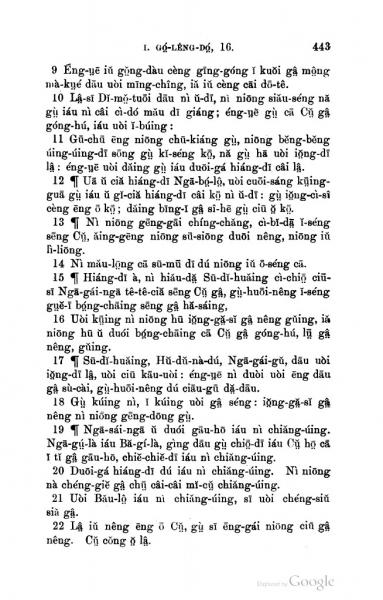 I. Gó̤-lêng-dó̤, 16. 443
9 Ĕng-ṳe iŭ gṳ̆ng-dàu cèng gĭng-góng ĭ kuŏi gâ̤ mông
mà-kṳé dău uòi mìng-chĭng, iá iŭ cèng cāi dô-tê.
10 Lâ̤-sĭ Dĭ-mò̤-tuŏi dău nì ŭ-dĭ, nì niōng siău-séng nă
gṳ̀ iáu nì câi cì-dó mău dĭ giáng; éng-ṳĕ gṳ̀ cā Cṳ̄ gâ̤
góng-hú, iáu uòi ĭ-búing:
11 Gū-chū ēng niōng chū-kiáng gṳ̀, niōng bĕng-bĕng
úing-úing-dĭ sŏng gṳ̀ kĭ-séng kṳ̆, nă gṳ̀ hā uòi iŏ̤ng-dĭ
lâ̤: éng-ṳĕ uòi dăing gṳ̀ iáu duŏi-gá hiáng-dĭ câi lâ̤.
12 ¶ Uā ŭ ciă hiáng-dĭ Ngā-bó̤-lò̤, uòi cuŏi-sáng kṳ̄ing-
guā gṳ̀ iáu ŭ gī-ciă hiáng-dĭ câi kō̤ nì ŭ-dĭ: gṳ̀ iŏ̤ng-cì-sĭ
cèng ēng ō kṳ̆; dăing bĭng-ī gâ̤ si-hē gṳ̀ ciŭ ō̤ kṳ̆.
13 ¶ Nì niōng gēng-gāi chíng-chăng, cì-bĭ-dā̤ ī-séng
sĕng Cṳ̄, ăing-gĕng niōng sŭ-siōng duŏi nêng, niōng iŭ
lī-liōng.
14 Nì mău-lòng cā sŭ-mŭ dī dú niōng iŭ ŏ-séng cā.
15 ¶ Hiáng-dĭ à, nì hiău-dā̤ Sū-dĭ-huăing cì-chiŏ̤ ciū-
sī Ngā-gái-ngā tê-tê-ciă sĕng Cṳ̄ gâ̤, gṳ̀-huŏi-nêng ī-séng
gṳĕ-ī bó̤ng-chăing sĕng gâ̤ hă-sáing,
16 Uòi kṳ̆ing nì niōng hū iŏ̤ng-gā̤-sī gâ̤ nêng gŭing, iá
niōng hū ŭ duói bó̤ng-chăing cā Cṳ̄ gâ̤ góng-hú, lṳ̄ gâ̤
nêng, gŭing.
17 ¶ Sū-dĭ-huăing, Hū-dŭ-nà-dú, Ngā-gái-gŭ, dău uòi
iŏ̤ng-dĭ lâ̤, uòi ciŭ kāu-uòi: éng-ṳĕ nì duòi uòi ēng dău
gâ̤ sṳ̀-cài, gṳ̀-huŏi-nêng dú ciău-gū dā̤-dău.
18 Gṳ̀ kúing nì, ĭ kúing uòi gâ̤ séng: iŏ̤ng-gā̤-sī gâ̤
nêng nì niōng gēng-dŏng gṳ̀.
19 ¶ Ngā-sái-ngā ŭ duói gău-hō iáu nì chiăng-úing.
Ngā-gṳ́-là iáu Bă-gí-là, gìng dău gṳ̀ chiŏ̤-dī iáu Cṳ̄ hō̤ cā
ĭ tĭ gâ̤ gău-hō, chiĕ-chiĕ-dī iáu nì chiăng-úing.
20 Duŏi-gá hiáng-dĭ dú iáu nì chiăng-úing. Nì niōng
nă chéng-giĕ gâ̤ chṳ̄ câi-câi mī-cṳ̆ chiăng-úing.
21 Uòi Băū-lò̤ iáu nì chiăng-úing, sī uòi chéng-siŭ
siă gâ̤.
22 Lâ̤ iŭ nêng ēng ō Cṳ̄, gṳ̀ sĭ ĕng-gái niōng ciū gâ̤
nêng. Cṳ̄ cŏng ō̤ lâ̤.
Digitized by Google